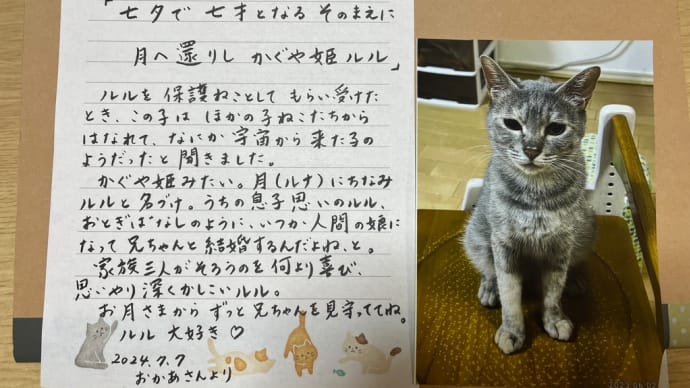 「
七夕で 七才となる そのまえに
月へ還りし かぐや姫 ルル」
ルルを 保護ねことして もらい受けた
とき、この子は ほかの子ねこたちから
はなれて、なにか宇宙から来た子の
ようだったと聞きました。
かぐや姫みたい。月(ルナ)にちなみ
ルルと名づけ。うちの息子思いのルル、
おとぎばなしのように、いつか人間の娘に
なって兄ちゃんと結婚するんだよね、と。
家族三人がそろうのを何より喜び、
思いやり深くかしこいルル。
お月さまから ずっと兄ちゃんを見守っててね。
ルル 大好き♡
2024.7.7
おかあさんより